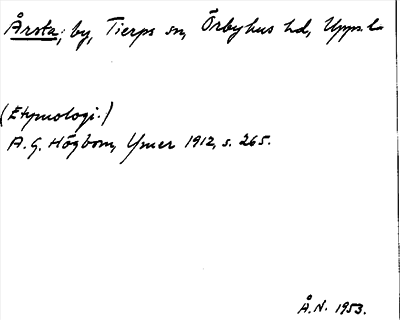 Årsta; by, Tierps sn, Örbyhus hd, Upps. l.
(Etymologi.)
A.G. Högbom, Ymer 1912, s. 265.
Å.N. 1953.